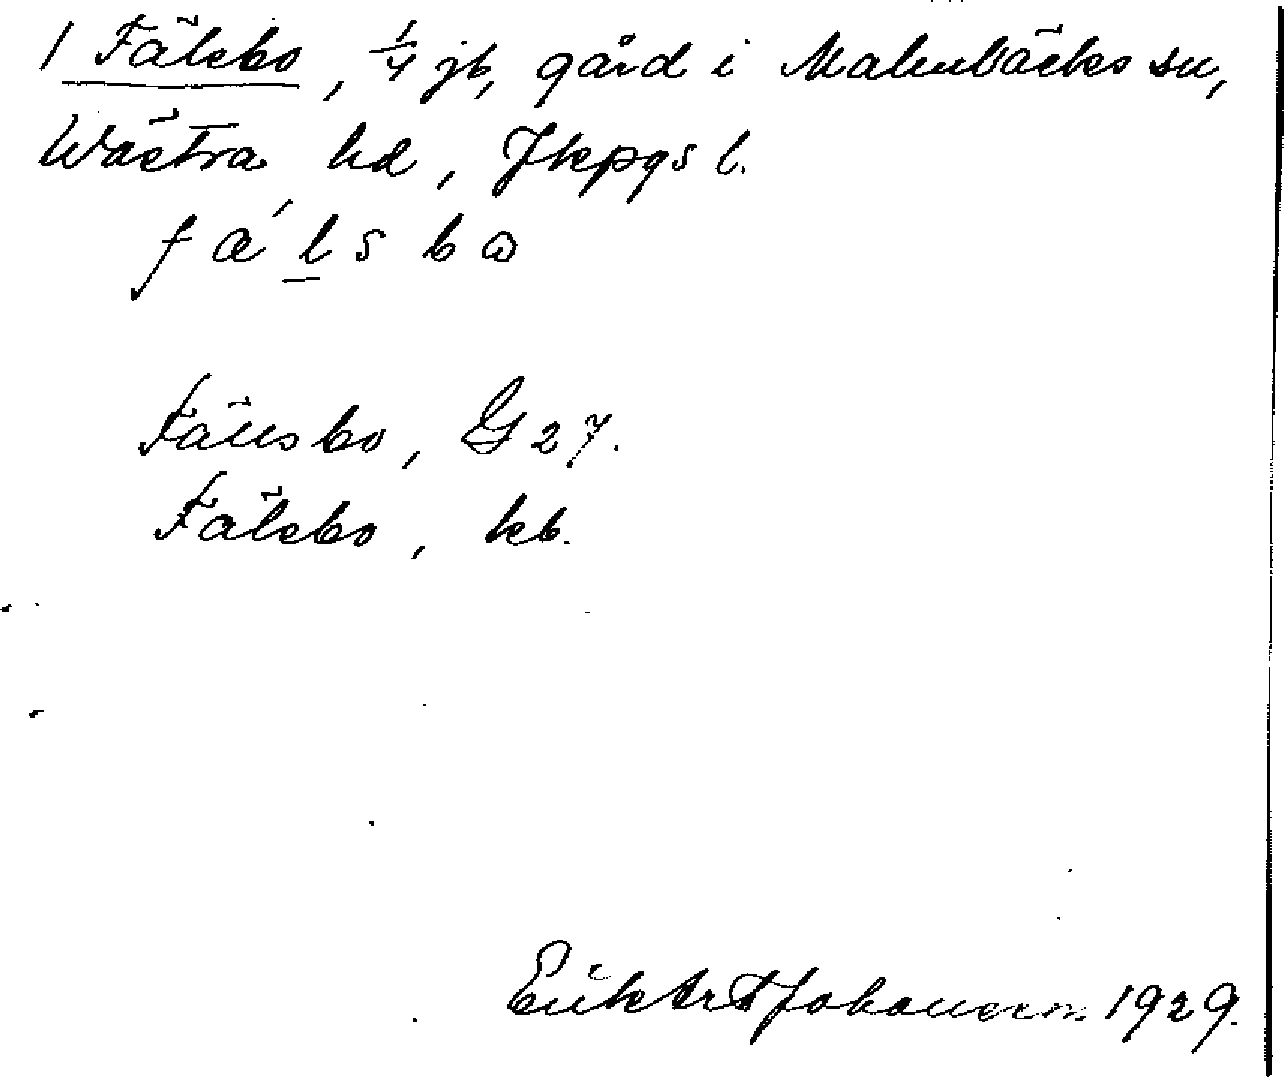 1 Fälsbo, 1/4 jb, gård i Malmbäcks sn,
Västra hd, Jkpgs l.
fä́lsbω
Fällsbo, G 27.
Fälsbo, kb.
Johansson. 1929.